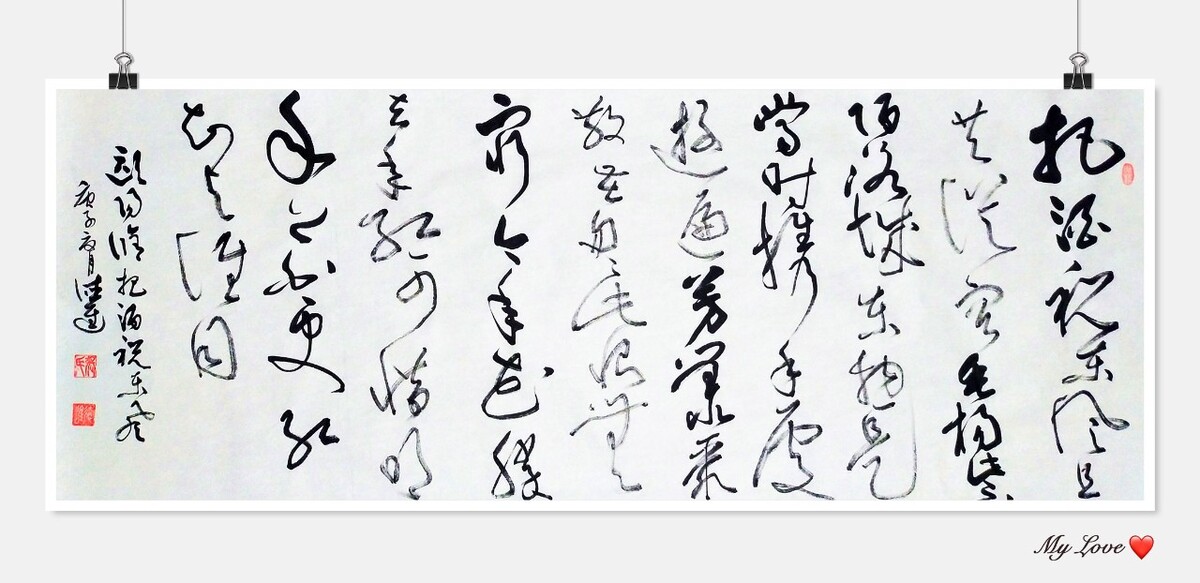 把酒祝东风且
共從容垂楊紫
陌洛城东總是
當時攜手處
遊遍芳叢聚
散苦匆匆此恨無
穷今年花勝
去年红可惜明
年花更好
知与谁同
欧阳修把酒祝东风
庚子夏月
My Love ❤️